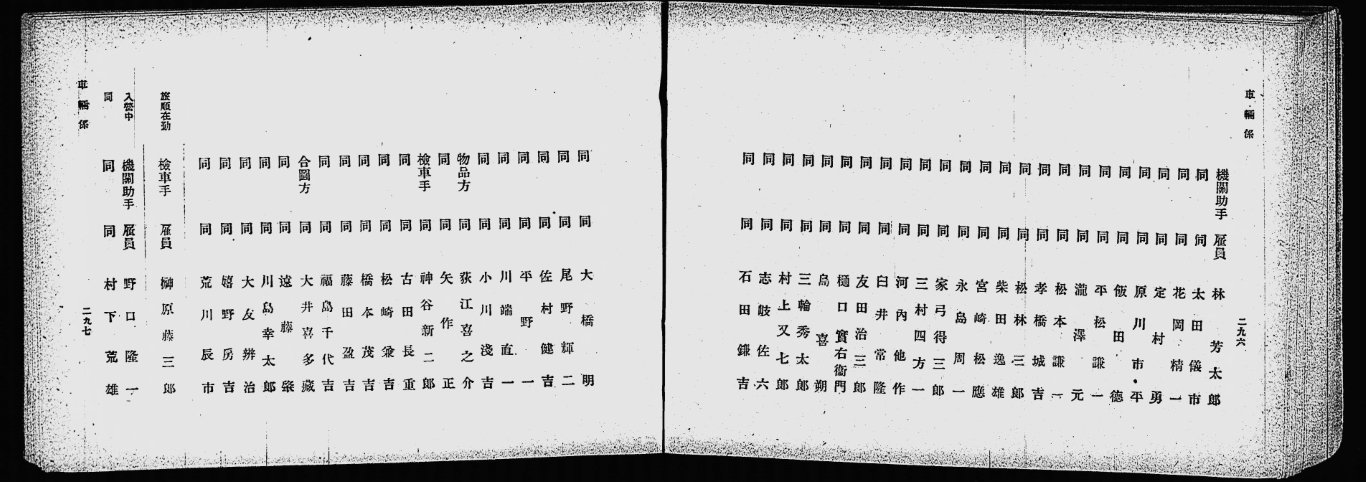 車輛係
二九六
機關助手 雇員 林芳太郎
同 同 太田儀市
同 同 花岡精一
同 同 定村勇
同 同 原川市平
同 同 飯田德
同 同 平松謙一
同 同 瀧澤元
同 同 松本謙一
同 同 孝橋城吉
同 同 松林三郎
同 同 柴田逸雄
同 同 宮崎松應
同 同 永島周一
同 同 家弓得三郎
同 同 三村四方一
同 同 河內他作
同 同 臼井常隆
同 同 友田治三郎
同 同 樋口實右衞門
同 同 島喜朔
同 同 三輪秀太郎
同 同 村上又七郎
同 同 志岐佐六
同 同 石田鎌吉
同 同 大橋明
同 同 尾野輝二
同 同 佐村健吉
同 同 平野一
同 同 川端直一
同 同 小川淺吉
物品方 同 荻江喜之介
同 同 矢作正
檢車手 同 神谷新二郎
同 同 古田長重
同 同 松崎兼吉
同 同 橋本茂吉
同 同 藤田盈吉
同 同 福島千代吉
合圖方 同 大井喜多藏
同 同 遠藤
同 同 川島幸太郎
同 同 大友辨治
同 同 嬉野房吉
同 同 荒川辰市
旅順在勤 檢車手 雇員 榊原藤三郎
入營中 機關助手 雇員 野口隆一
同 同 同 村下荒雄
車輛係
二九七